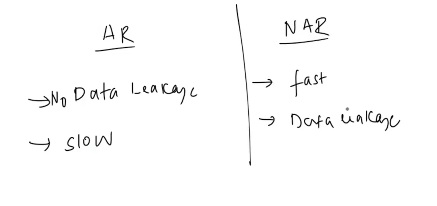 AR
→ No Data Leakage
→ slow
NAR
→ fast
→ Data Leakage